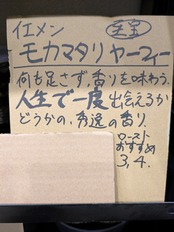 イエメン 至宝
モカマタリ ヤーフィー
何も足さず、香りを味わう、
人生で一度出会えるか
どうかの、秀逸の香り。
ロースト
おすすめ
3,4.